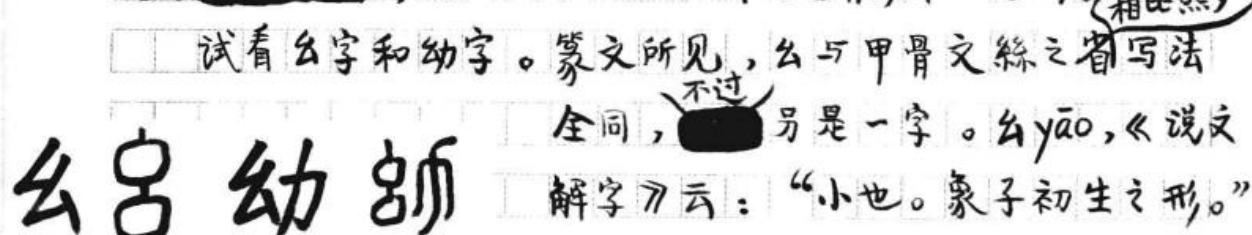 相比照，
试看幺字和幼字。篆文所见，幺与甲骨文絲之省写法
全同，不过另是一字。幺yāo，《说文
解字》云：“小也。象子初生之形。”
幺 幼